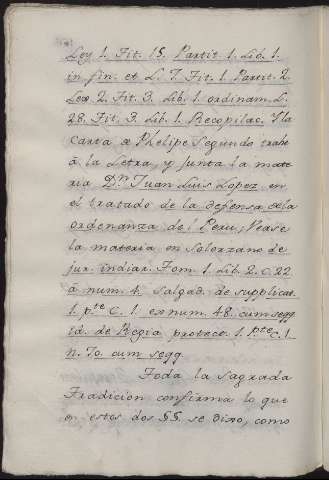 Ley 1. Tit. 15. Partit. 1. Lib. 1.
in fin. et L. 7. Tit. 1. Partit. 2.
Lex. 2. Tit. 3. Lib. 1. ordinam. L.
28. Tit. 3. Lib. 1. Recopilac. Y la
Carta de Phelipe Segundo trahe
à la Letra, y junta la mate
ria Dⁿ Juan Luis Lopez en
el tratado de la defensa de la
ordenanza del Peru, Vease
la materia en Solorzano de
jur. indiar. Tom. 1. Lib. 2. C. 22
à num. 4. Salgad. de supplicat.
1. pᵗᵉ C. 1. ex num. 48. cum segq
id. de Regia protecc. 1. pᵗᵉ C. 1.
n. 70. cum segq.
Toda la Sagrada
Tradicion confirma lo que
en estos dos §§. se dixo, como